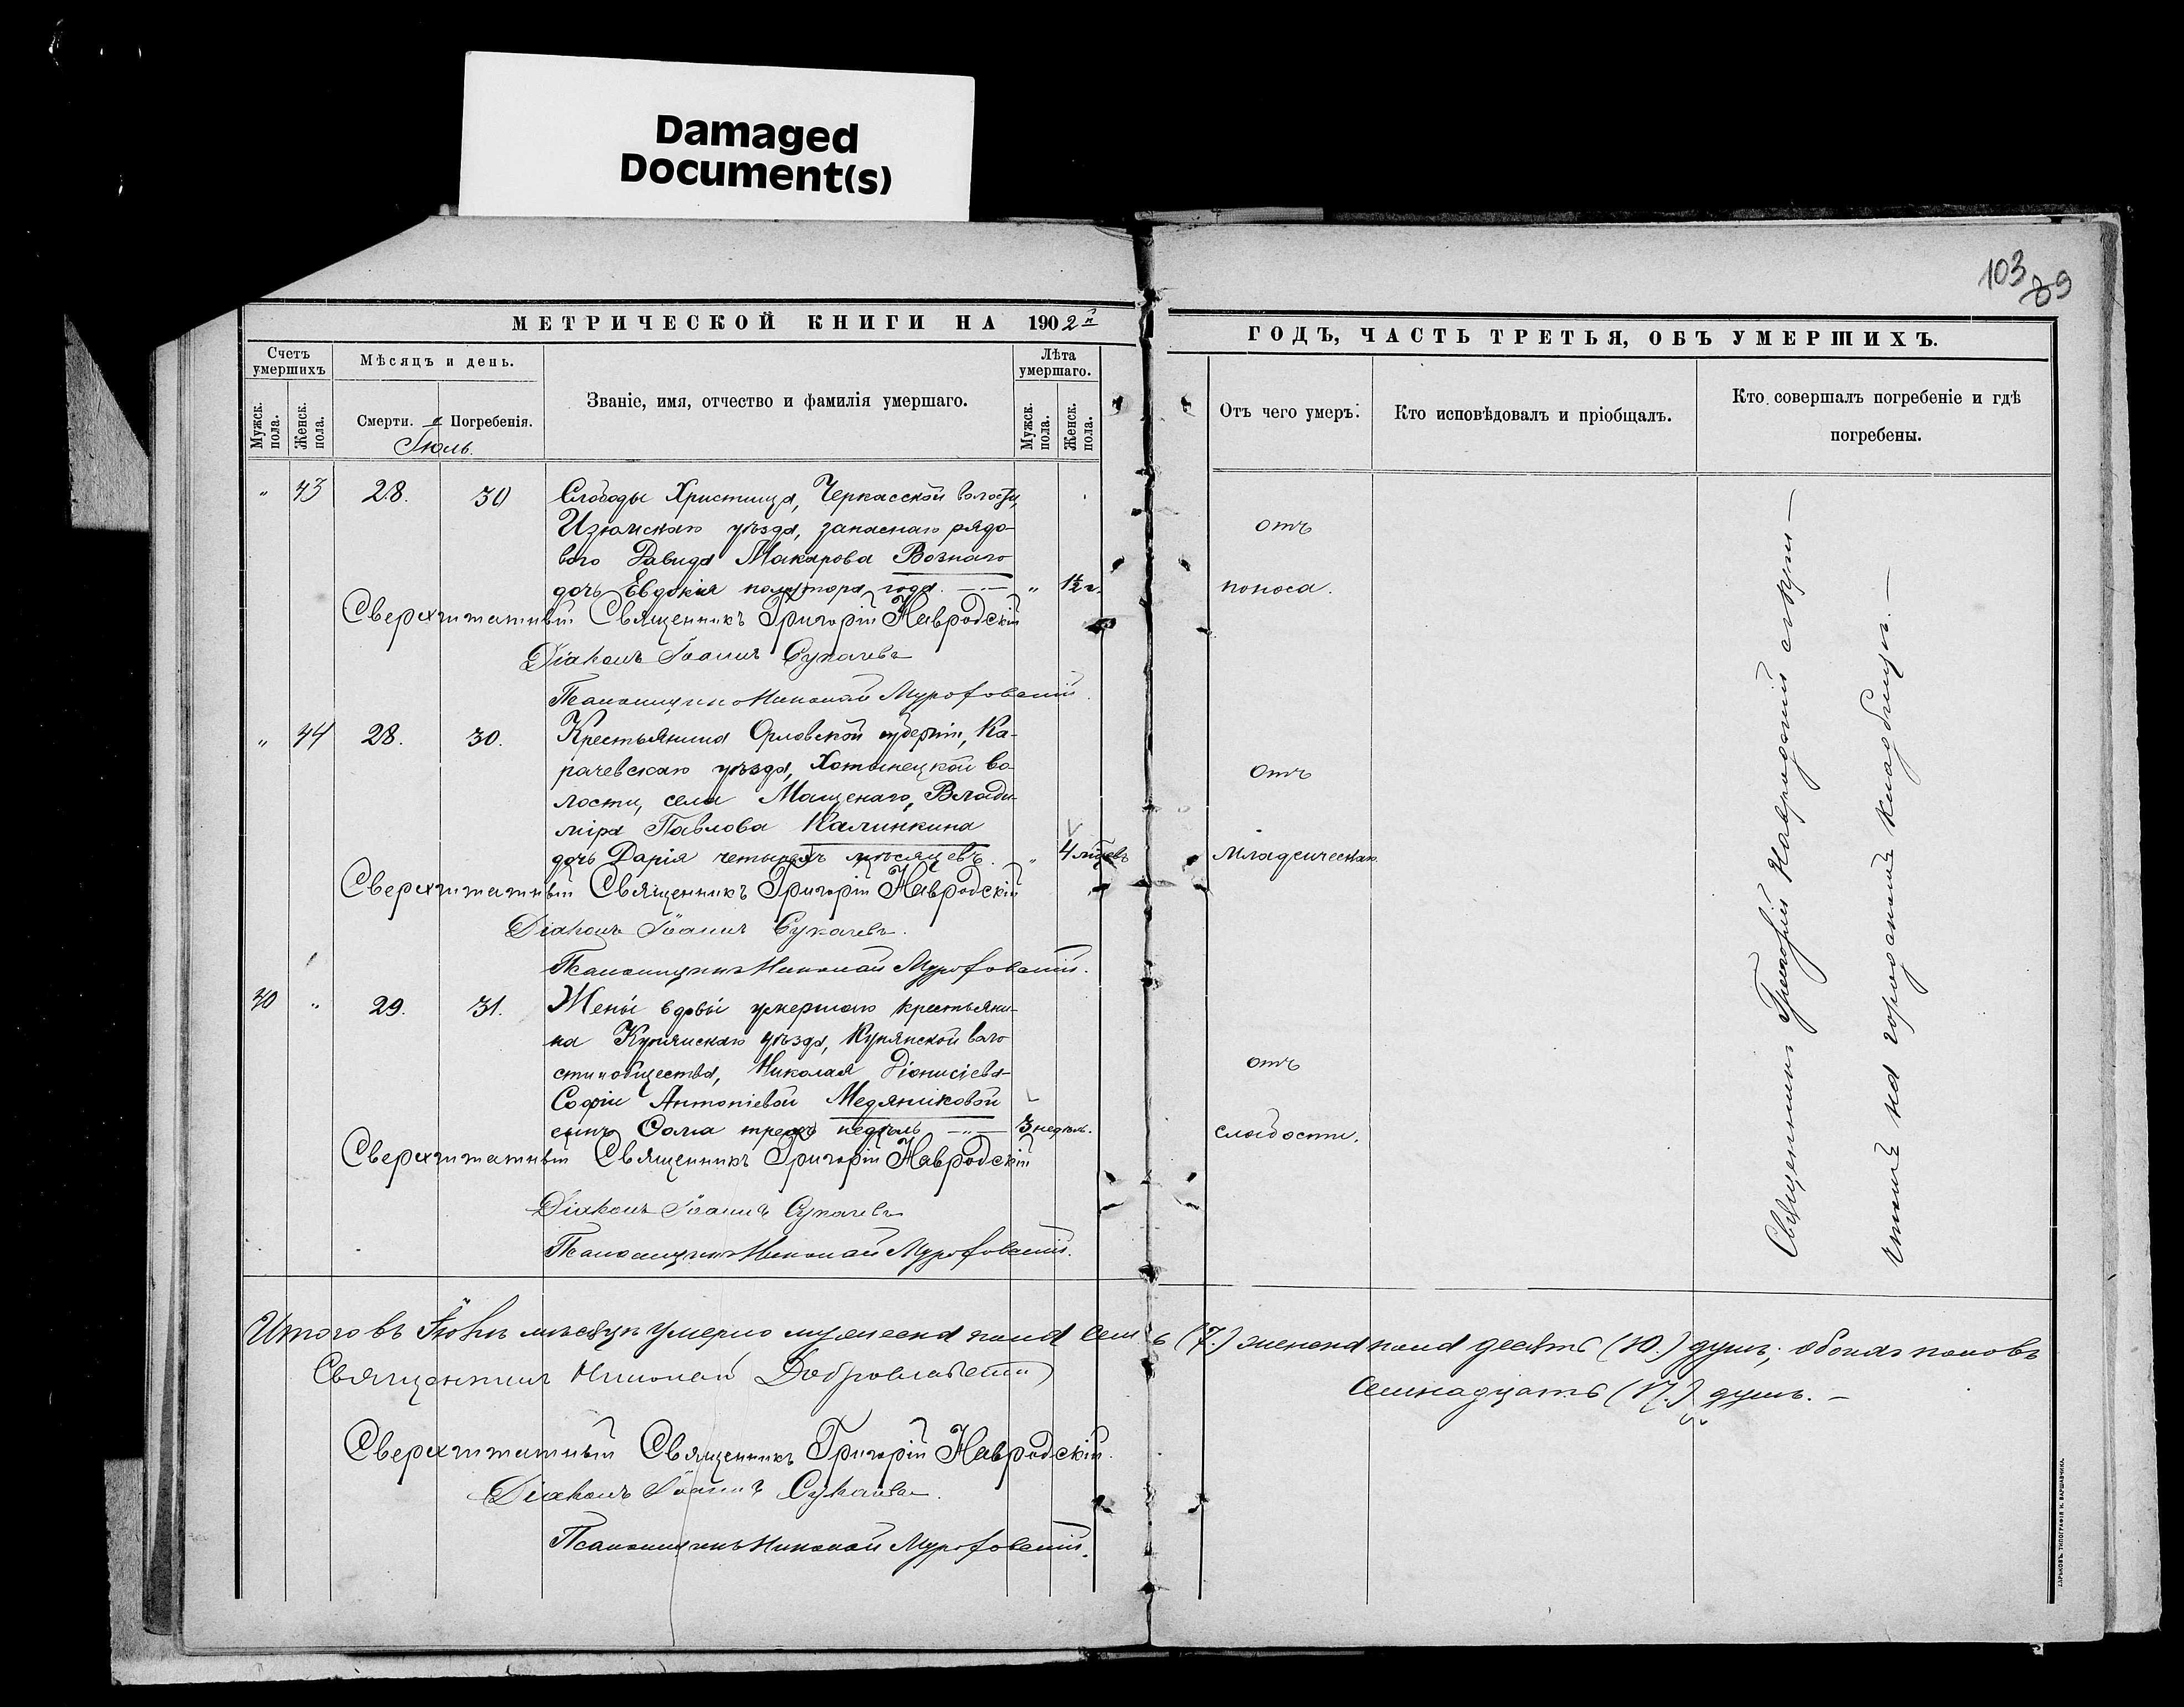 Damaged
Document(s)
103
89
МЕТРИЧЕСКОЙ КНИГИ НА 1902й
ГОДЪ, ЧАСТЬ ТРЕТЬЯ, ОБЪ УМЕРШИХЪ.
Счетъ умершихъ
Мужск. пола.
Женск. пола.
Мѣсяцъ и день.
Смерти. и Погребенія.
Іюль.
Званіе, имя, отчество и фамилія умершаго.
Лѣта умершаго.
Мужск. пола.
Женск. пола.
Отъ чего умеръ.
Кто исповѣдовалъ и пріобщалъ.
Кто совершалъ погребеніе и гдѣ
погребены.
" 43 28. 30 Слободы Христища, Черкасской волости,
Изюмскаго уѣзда, запаснаго рядо-
вого Давида Макарова Вознаго
дочь Евдокія полутора года. " 1½ г.
отъ
поноса.
Сверхштатный Священникъ Григорій Навродскій
Діаконъ Іоаннъ Сукачевъ
Псаломщикъ Николай
" 44 28. 30. Крестьянина Орловской губерніи, Ка-
рачевскаго уѣзда, Хотынецкой во-
лости, села Мощенаго, Влади-
міра Павлова Калинкина
дочь Дарія четырехъ мѣсяцевъ. " 4 мѣсцевъ
Отъ
младенческаго.
Сверхштатный Священникъ Григорій Навродскій
Діаконъ Іоаннъ Сукачевъ.
Псаломщикъ Николай
30 " 29. 31. Жены вдовы умершаго крестьяни-
на Купянскаго уѣзда, Купянской воло
сти и общества, Николая Діонисіева
Софіи Антоніевой Медяниковой
сынъ Ѳома трехъ недѣль 3 недѣль.
отъ
слабости.
Сверхштатный Священникъ Григорій Навродскій
Діаконъ Іоаннъ Сукачевъ
Псаломщикъ Николай
Священникъ Григорій Навродскій
на городскомъ кладбищѣ.
Итого въ мѣсяцѣ умерло мужеска пола семь (7.) женска пола десять (10.) душъ; обоихъ половъ
семнадцать (17.) душъ. —
Священникъ Николай
Сверхштатный Священникъ Григорій Навродскій.
Діаконъ Іоаннъ Сукачевъ.
Псаломщикъ Николай
ХАРЬКОВЪ. ТИПОГРАФІЯ И. ВАРШАВЧИКА.